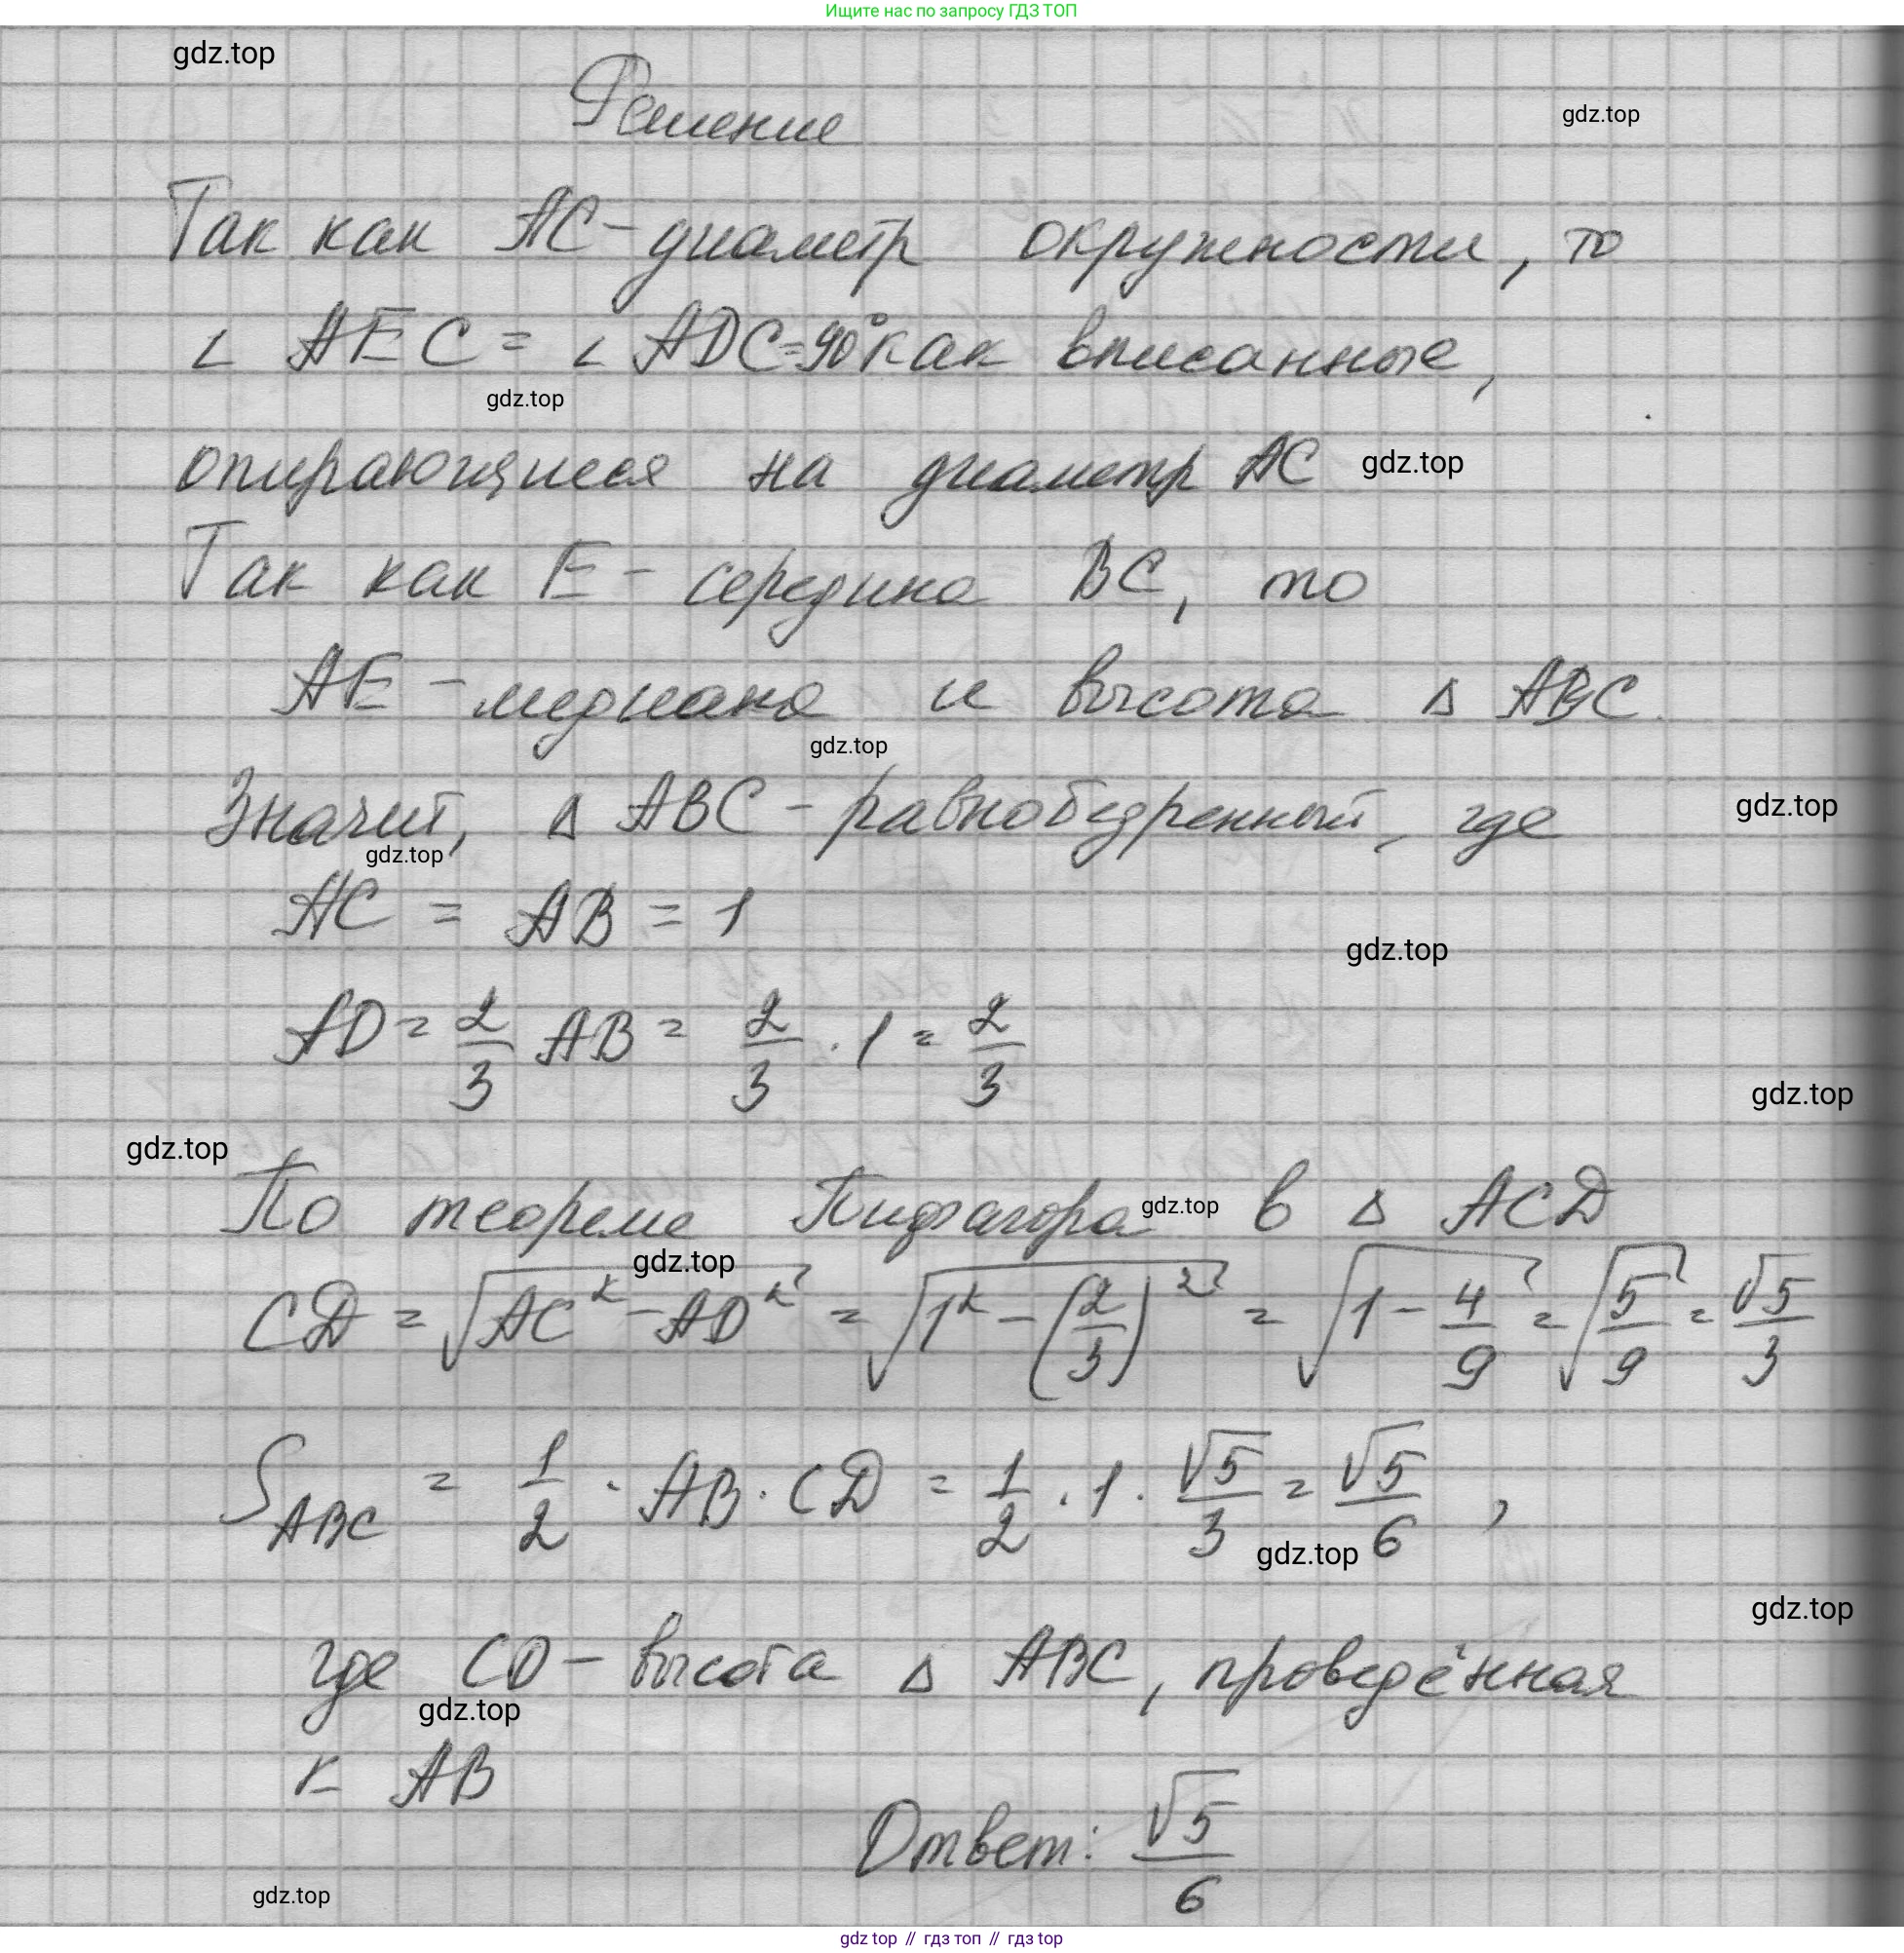 Ищите нас по запросу ГДЗ ТОП
gdz.top
Решение
gdz.top
Так как AC - диаметр окружности, то
∠ AEC = ∠ ADC = 90° как вписанные,
gdz.top
опирающиеся на диаметр AC gdz.top
Так как E - середина BC, то
AE - медиана и высота Δ ABC.
gdz.top
Значит, Δ ABC - равнобедренный, где gdz.top
gdz.top
AC = AB = 1
gdz.top
AD = 2/3 AB = 2/3 · 1 = 2/3
gdz.top
gdz.top
По теореме Пифагора gdz.top в Δ ACD
gdz.top
CD = √(AC² - AD²) = √(1² - (2/3)²) = √(1 - 4/9) = √(5/9) = √5/3
S ABC = 1/2 · AB · CD = 1/2 · 1 · √5/3 = √5/6 ,
gdz.top
gdz.top
где CD - высота Δ ABC, проведённая
gdz.top
к AB
Ответ: √5/6
gdz.top
gdz top // гдз топ // гдз top